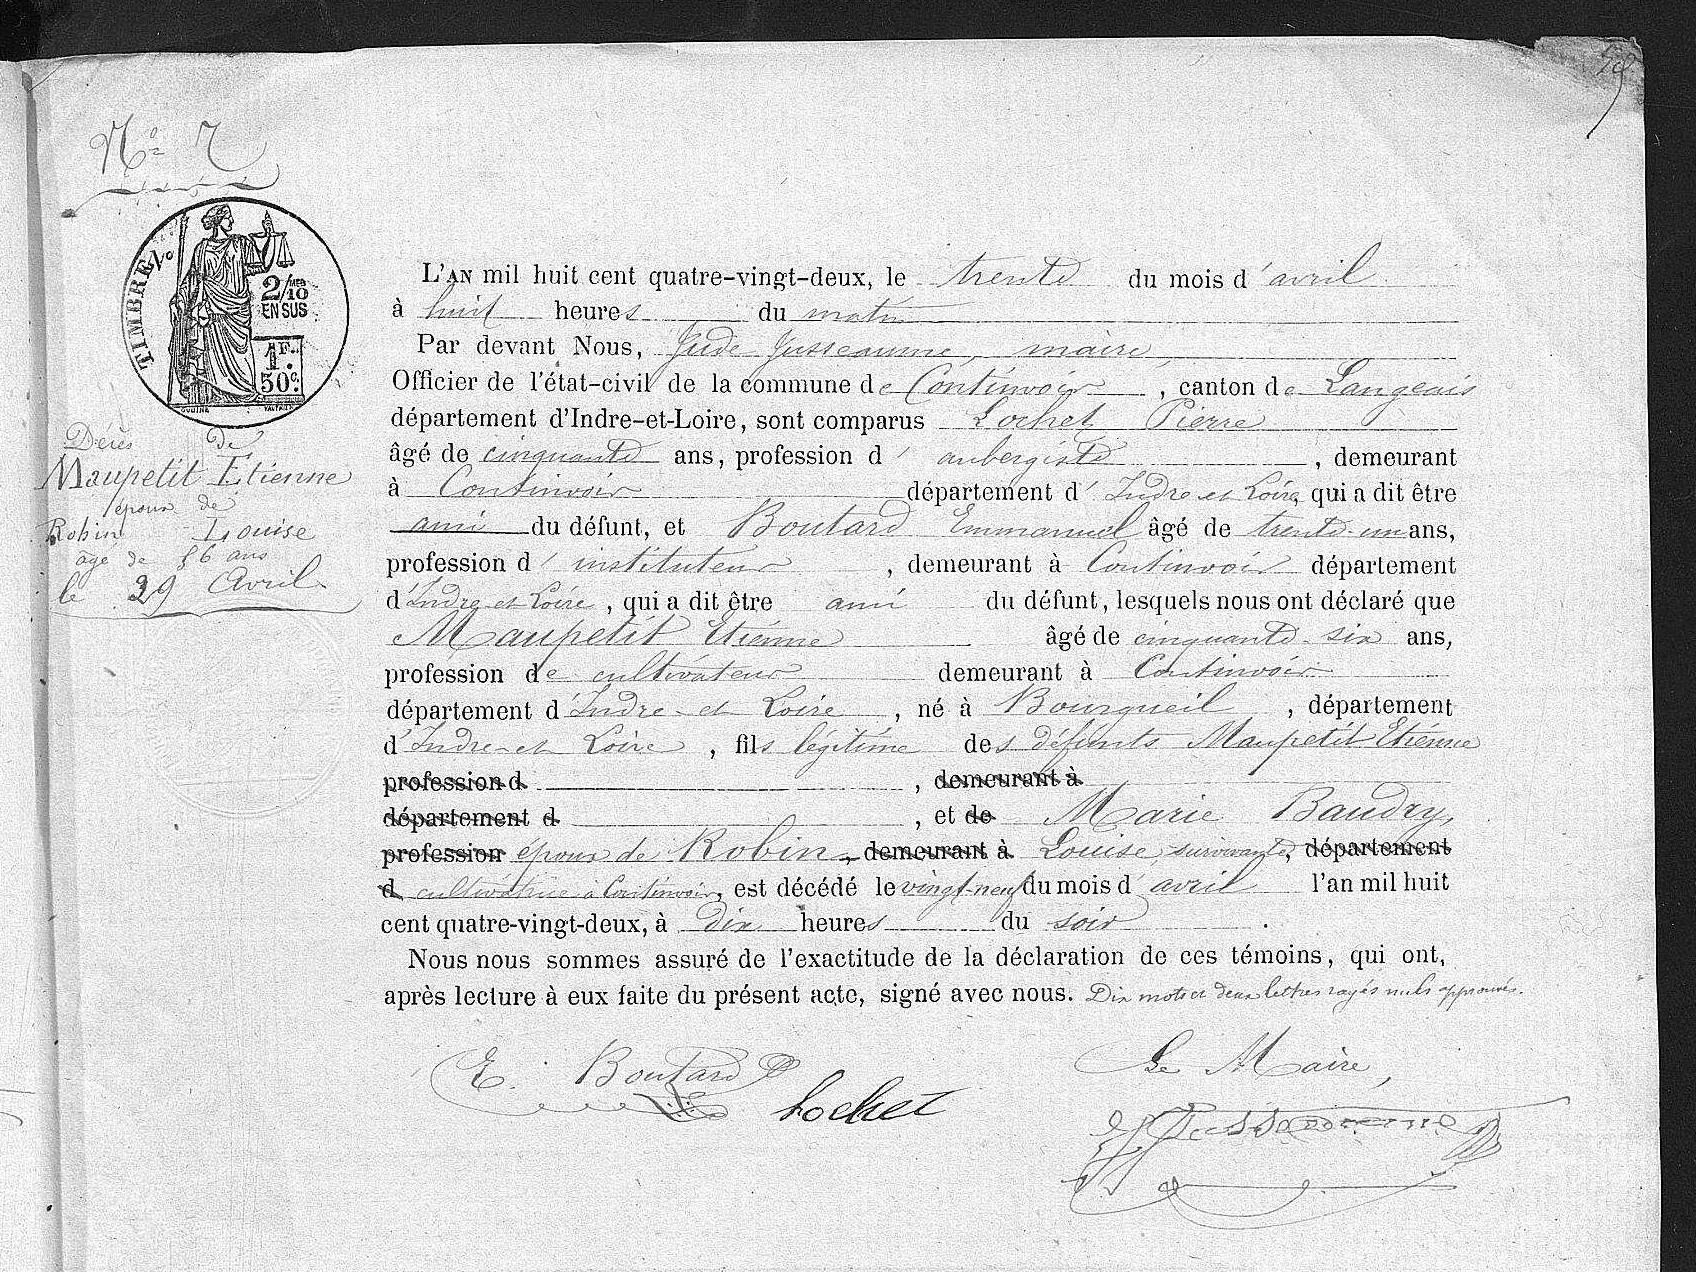 59
N° 7
TIMBRE
2/10
EN SUS
1F.
50c.
Décès de
Maupetit Etienne
époux de
Robin Louise
âgé de 56 ans
le 29 Avril
L'AN mil huit cent quatre-vingt-deux, le trente du mois d'avril
à huit heures du matin
Par devant Nous, Jude Jusseaume, maire
Officier de l'état-civil de la commune de Continvoir, canton de Langeais
département d'Indre-et-Loire, sont comparus Lochet Pierre
âgé de cinquante ans, profession d'aubergiste, demeurant
à Continvoir département d'Indre et Loire, qui a dit être
ami du défunt, et Boutard Emmanuel âgé de trente-un ans,
profession d'instituteur, demeurant à Continvoir département
d'Indre et Loire, qui a dit être ami du défunt, lesquels nous ont déclaré que
Maupetit Etienne âgé de cinquante-six ans,
profession de cultivateur demeurant à Continvoir
département d'Indre-et Loire, né à Bourgueil, département
d'Indre-et Loire, fils légitime des défunts Maupetit Etienne
profession d , demeurant à
département d , et de Marie Baudry,
profession époux de Robin, demeurant à Louise survivante, département
d cultivatrice à Continvoir, est décédé le vingt-neuf du mois d'avril l'an mil huit
cent quatre-vingt-deux, à dix heures du soir.
Nous nous sommes assuré de l'exactitude de la déclaration de ces témoins, qui ont,
après lecture à eux faite du présent acte, signé avec nous. Dix mots et deux lettres rayés nuls approuvés.
E. Boutard
Lochet
Le Maire,
Jusseaume